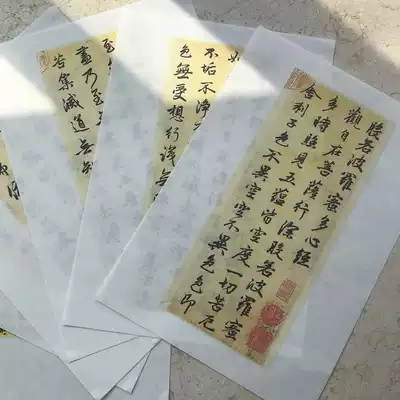 般若波羅蜜多心經
觀自在菩薩行深般若波羅蜜
多時照見五蘊皆空度一切苦厄
舍利子色不異空空不異色色即
不垢不淨
色無受想行識無
至
盡乃至
苦集滅道無